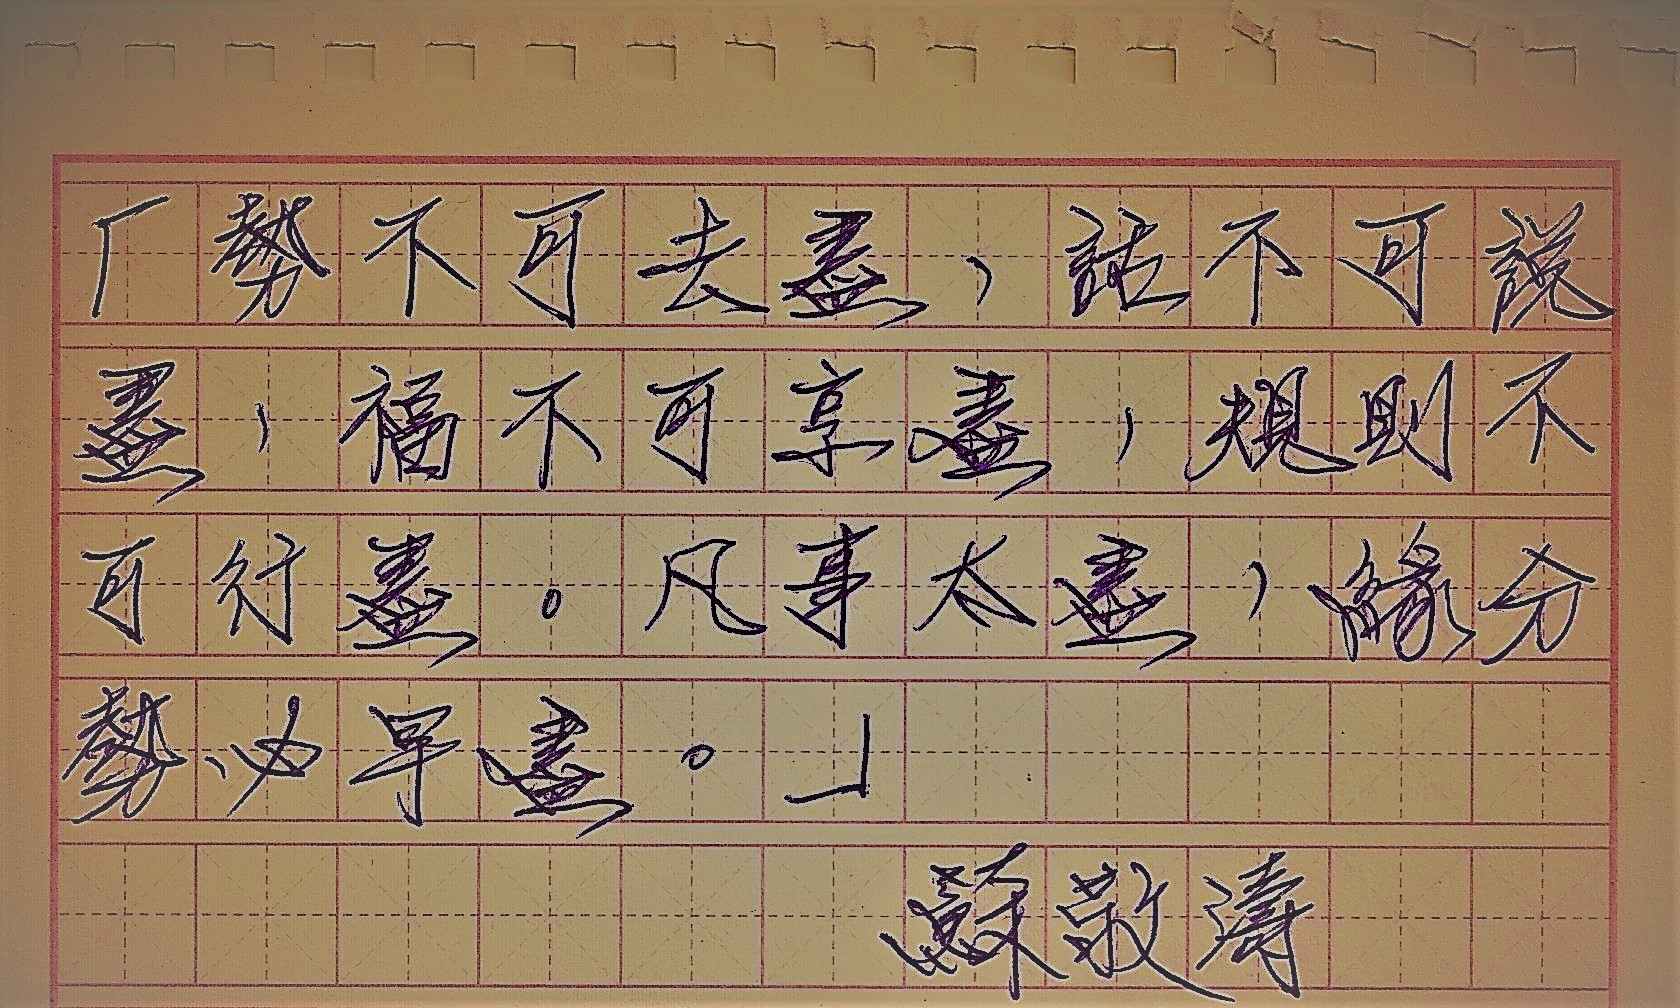 「勢不可去盡，話不可說
盡，福不可享盡，規則不
可行盡。凡事太盡，緣分
勢必早盡。」
蘇敬濤